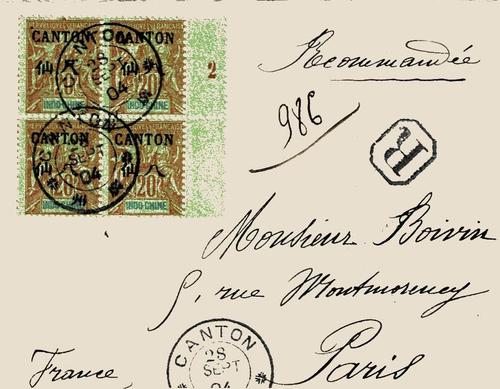 CANTON CANTON
INDO-CHINE INDO-CHINE
2
Recommandée
986
R
CANTON CANTON
20 20
INDO-CHINE INDO-CHINE
八仙
CANTON
28
SEPT
04
Monsieur Boivin
5, rue Montmorency
Paris
France
CANTON
28
SEPT
04